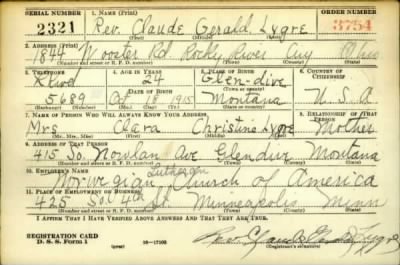 SERIAL NUMBER 1. NAME (Print) ORDER NUMBER
2321 Rev. Claude Gerald Lygre 3754
(First) (Middle) (Last)
2. ADDRESS (Print)
1844 Wooster Rd. Rocky River Cuy Ohio
(Number and street or R. F. D. number) (Town) (County) (State)
3. TELEPHONE 4. AGE IN YEARS 5. PLACE OF BIRTH 6. COUNTRY OF CITIZENSHIP
Klwd 24 Glen-dive
5689 Oct 18 1915 Montana U.S.A
7. NAME OF PERSON WHO WILL ALWAYS KNOW YOUR ADDRESS 8. RELATIONSHIP OF THAT PERSON
Mrs Clara Christine Lygre Mother
(Mr., Mrs., Miss) (First) (Middle) (Last)
9. ADDRESS OF THAT PERSON
415 So. Nowlan Ave Glendive Montana
(Number and street or R. F. D. number) (Town) (County) (State)
10. EMPLOYER'S NAME
Norwegian Lutheran Church of America
11. PLACE OF EMPLOYMENT OR BUSINESS
425 So. 4th St. Minneapolis Minn
(Number and street or R. F. D. number) (Town) (County) (State)
I AFFIRM THAT I HAVE VERIFIED ABOVE ANSWERS AND THAT THEY ARE TRUE.
REGISTRATION CARD
D. S. S. Form 1 16-17105 Rev. Claude Gerald Lygre
(Registrant's signature)